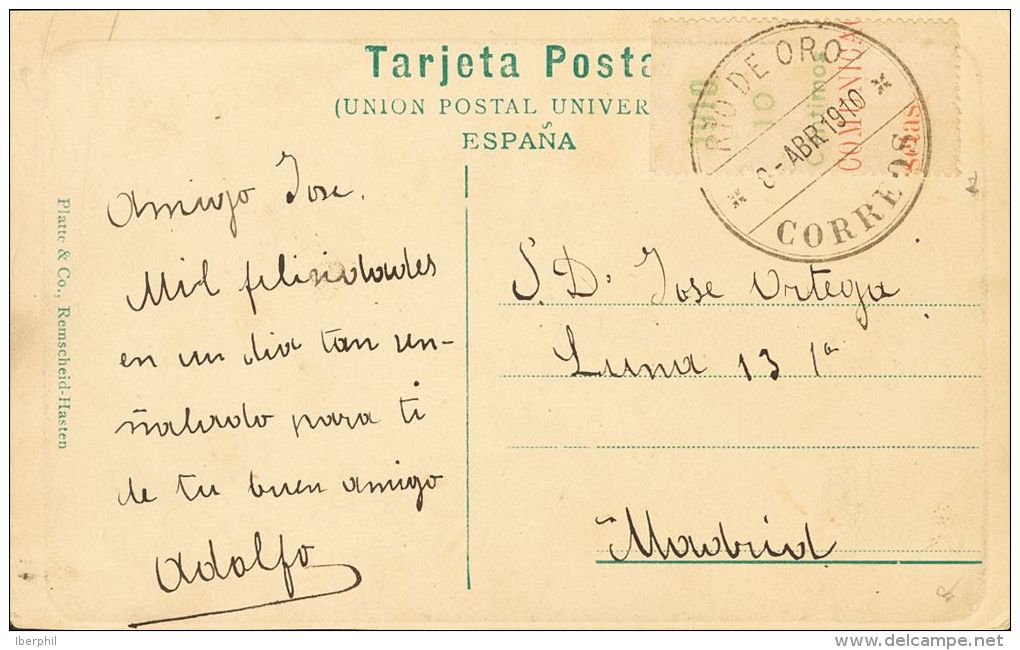 Tarjeta Posta
(UNION POSTAL UNIVER
ESPAÑA
RIO DE ORO
ABR 1910
CORREOS
1910
10
COMUNICAC
Amigo Jose.
Mil felicidades
en un dia tan sen-
ñalado para ti
de tu buen amigo
Adolfo
S. D. Jose Ortega
Luna 13 1a
Madrid
Platte & Co., Remscheid-Hasten
Iberphil
www.delcampe.net